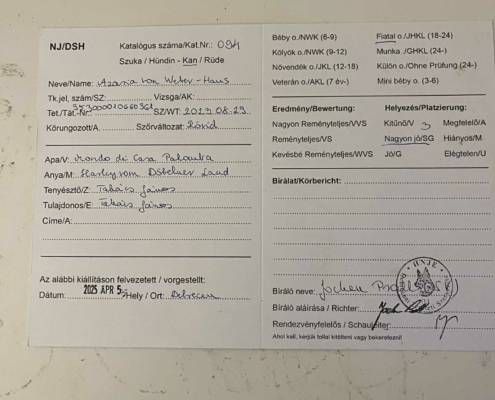 NJ/DSH Katalógus száma/Kat.Nr.: 094
Szuka / Hündin - Kan / Rüde
Neve/Name: Azaria von Weber-Haus
Tk.jel, szám/SZ: Vizsga/AK:
Tet./Tät.-Nr.: SZ/WT: 2023.08.29
Körungozott/A. Szőrváltozat: Rövid
Apa/V: Mondo di Casa Palomba
Anya/M: Harley vom Döbelner Land
Tenyésztő/Z: Takács János
Tulajdonos/E: Takács János
Címe/A:
Az alábbi kiállításon felvezetett / vorgestellt:
Dátum: 2025 APR 5 Hely / Ort: Debrecen
Béby o./NWK (6-9) Fiatal o./JHKL (18-24)
Kölyök o./NWK (9-12) Munka ./GHKL (24-)
Növendék o./JKL (12-18) Külön o./Ohne Prüfung (24-)
Veterán o./AKL (7 év-) Mini béby o. (3-6)
Eredmény/Bewertung: Helyezés/Platzierung:
Nagyon Reményteljes/VVS Kitűnő/V 3 Megfelelő/A
Reményteljes/VS Nagyon jó/SG Hiányos/M
Kevésbé Reményteljes/WVS Jó/G Elégtelen/U
Bírálat/Körbericht:
Bíráló neve: Jochen
Bíráló aláírása / Richter:
Rendezvényfelelős / Schauleiter:
Ahol kell, kérjük tollal kitölteni vagy bekeretezni!